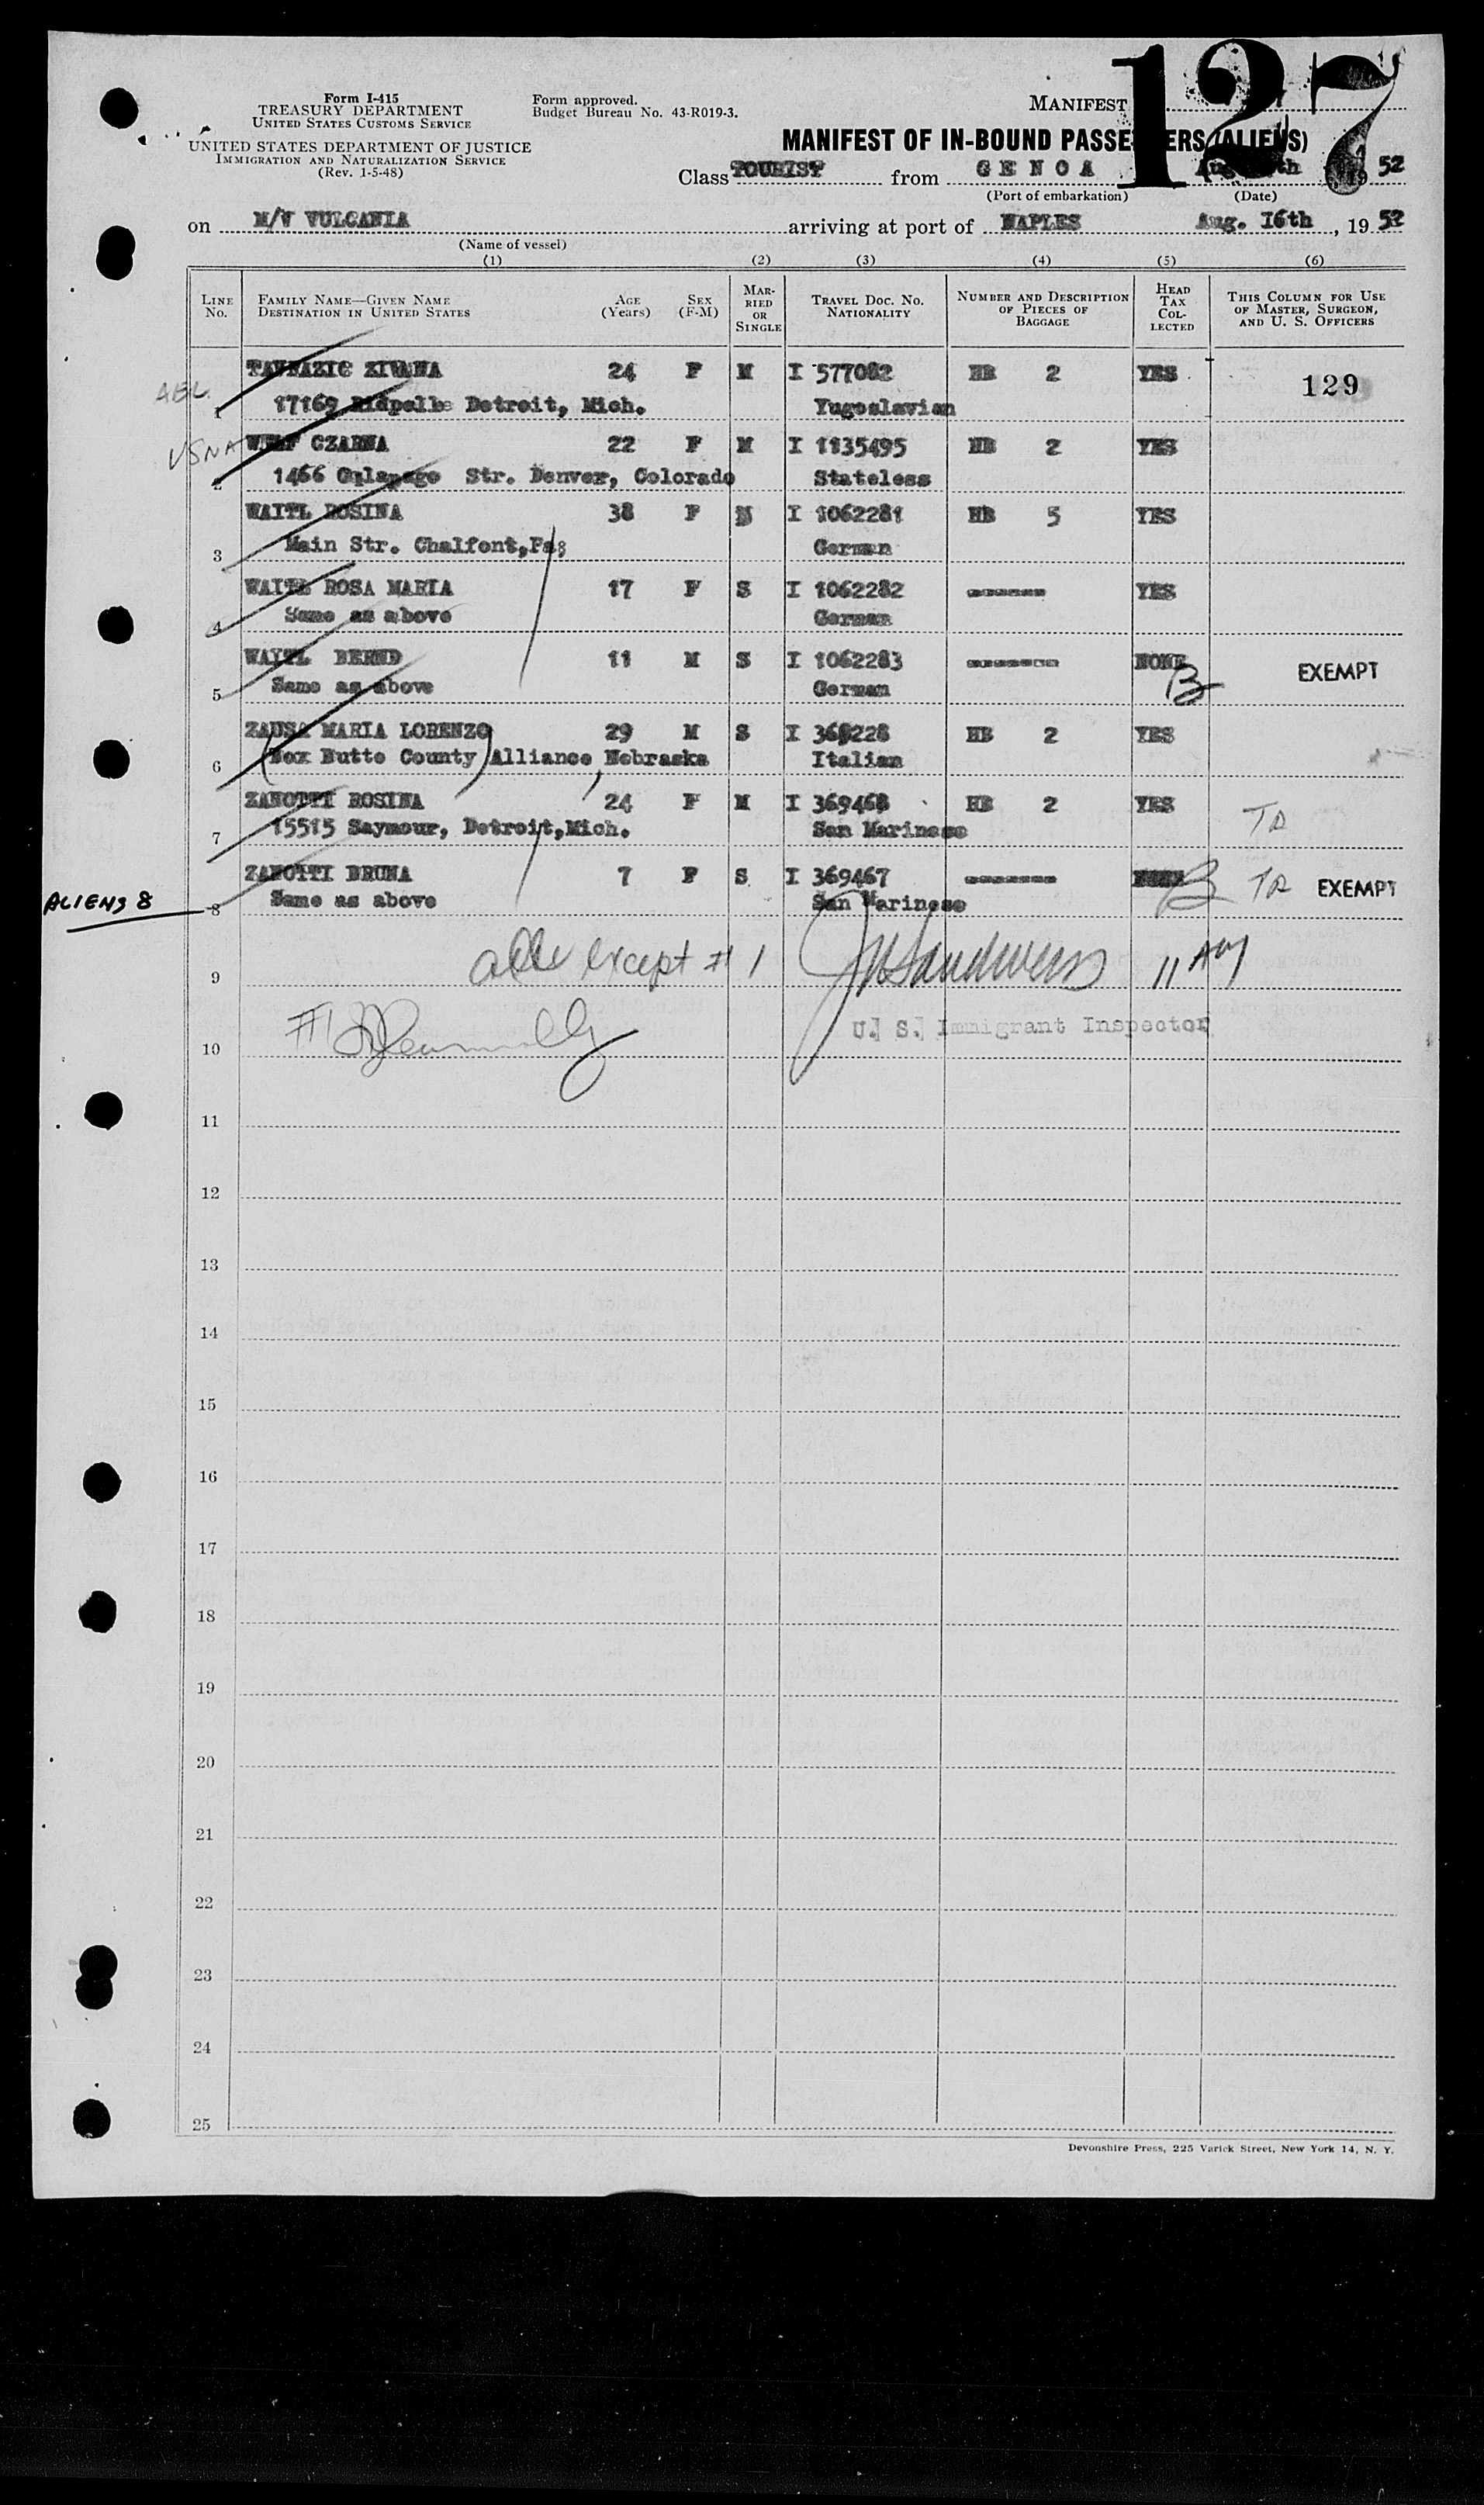 127
Form I-415
TREASURY DEPARTMENT
UNITED STATES CUSTOMS SERVICE
UNITED STATES DEPARTMENT OF JUSTICE
IMMIGRATION AND NATURALIZATION SERVICE
(Rev. 1-5-48)
Form approved.
Budget Bureau No. 43-R019-3.
MANIFEST
MANIFEST OF IN-BOUND PASSENGERS (ALIENS)
Class TOURIST from GENOA 52
(Port of embarkation) (Date)
on M/V VULCANIA arriving at port of NAPLES Aug. 16th, 1952
(Name of vessel)
(1) (2) (3) (4) (5) (6)
LINE No. FAMILY NAME—GIVEN NAME DESTINATION IN UNITED STATES AGE (Years) SEX (F-M) MARRIED OR SINGLE TRAVEL DOC. NO. NATIONALITY NUMBER AND DESCRIPTION OF PIECES OF BAGGAGE HEAD TAX COLLECTED THIS COLUMN FOR USE OF MASTER, SURGEON, AND U. S. OFFICERS
ZIVANA 24 F M I 577082 HB 2 YES 129
17169 Detroit, Mich. Yugoslavian
USNA CZARNA 22 F M I 1135495 HB 2 YES
2 1466 Galapago Str. Denver, Colorado Stateless
WAITL ROSINA 38 F I 1062281 HB 5 YES
3 Main Str. Chalfont, Pa; German
WAITL ROSA MARIA 17 F S I 1062282 ------- YES
4 Same as above German
WAITL BERND 11 M S I 1062283 -------- NONE B EXEMPT
5 Same as above German
ZAUSA MARIA LORENZO 29 M S I 368228 HB 2 YES
6 (Box Butte County) Alliance, Nebraska Italian
ZANOTTI ROSINA 24 F M I 369468 HB 2 YES
7 15515 Saymour, Detroit, Mich. San Marinese TA
ZANOTTI BRUNA 7 F S I 369467 -------- B TA EXEMPT
ALIENS 8
8 Same as above San Marinese
9 all except #1 11 Aug
#1
U. S. Immigrant Inspector
10
11
12
13
14
15
16
17
18
19
20
21
22
23
24
25
Devonshire Press, 225 Varick Street, New York 14, N. Y.